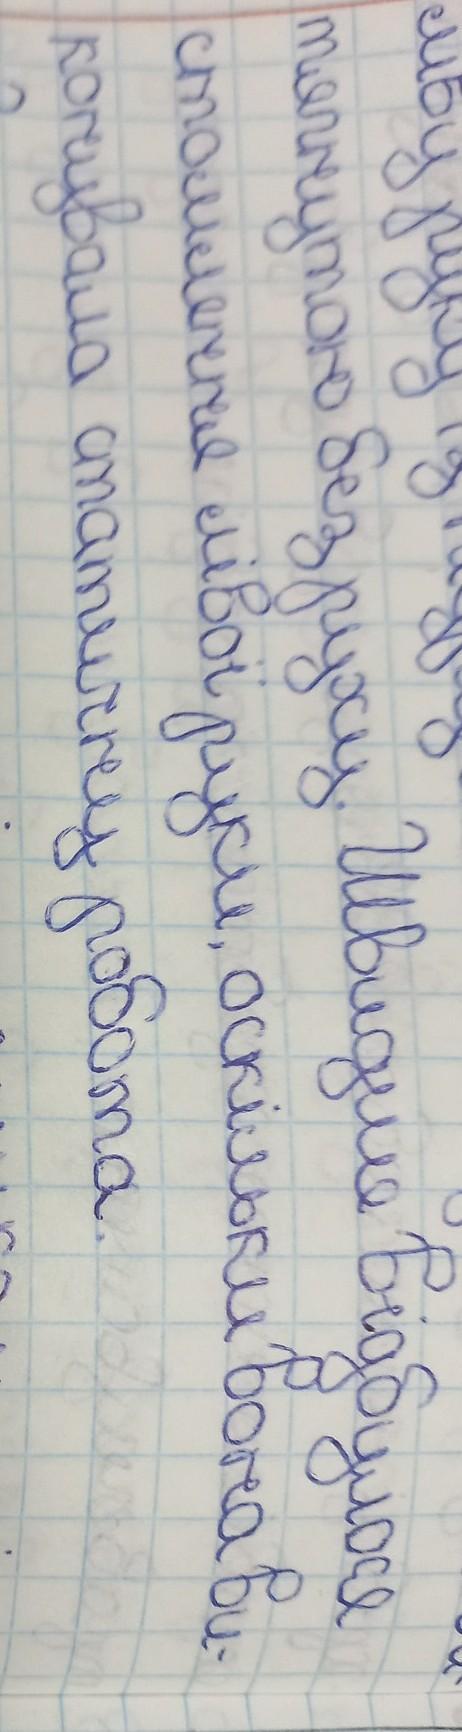 руку
тягнутою без руху. Швидше відбулося
стомлення лівої руки, оскільки вона ви-
конувала статичну робота.